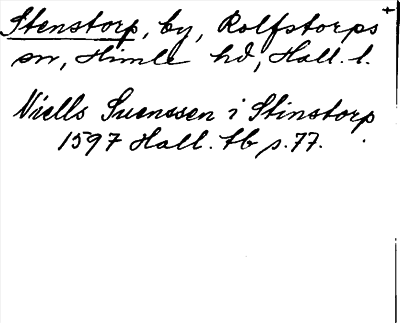 Stenstorp, by, Rolfstorps
sn, Himle hd, Hall. l.
Niells Suenssen i Stinstorp
1597 Hall. tb s. 77.